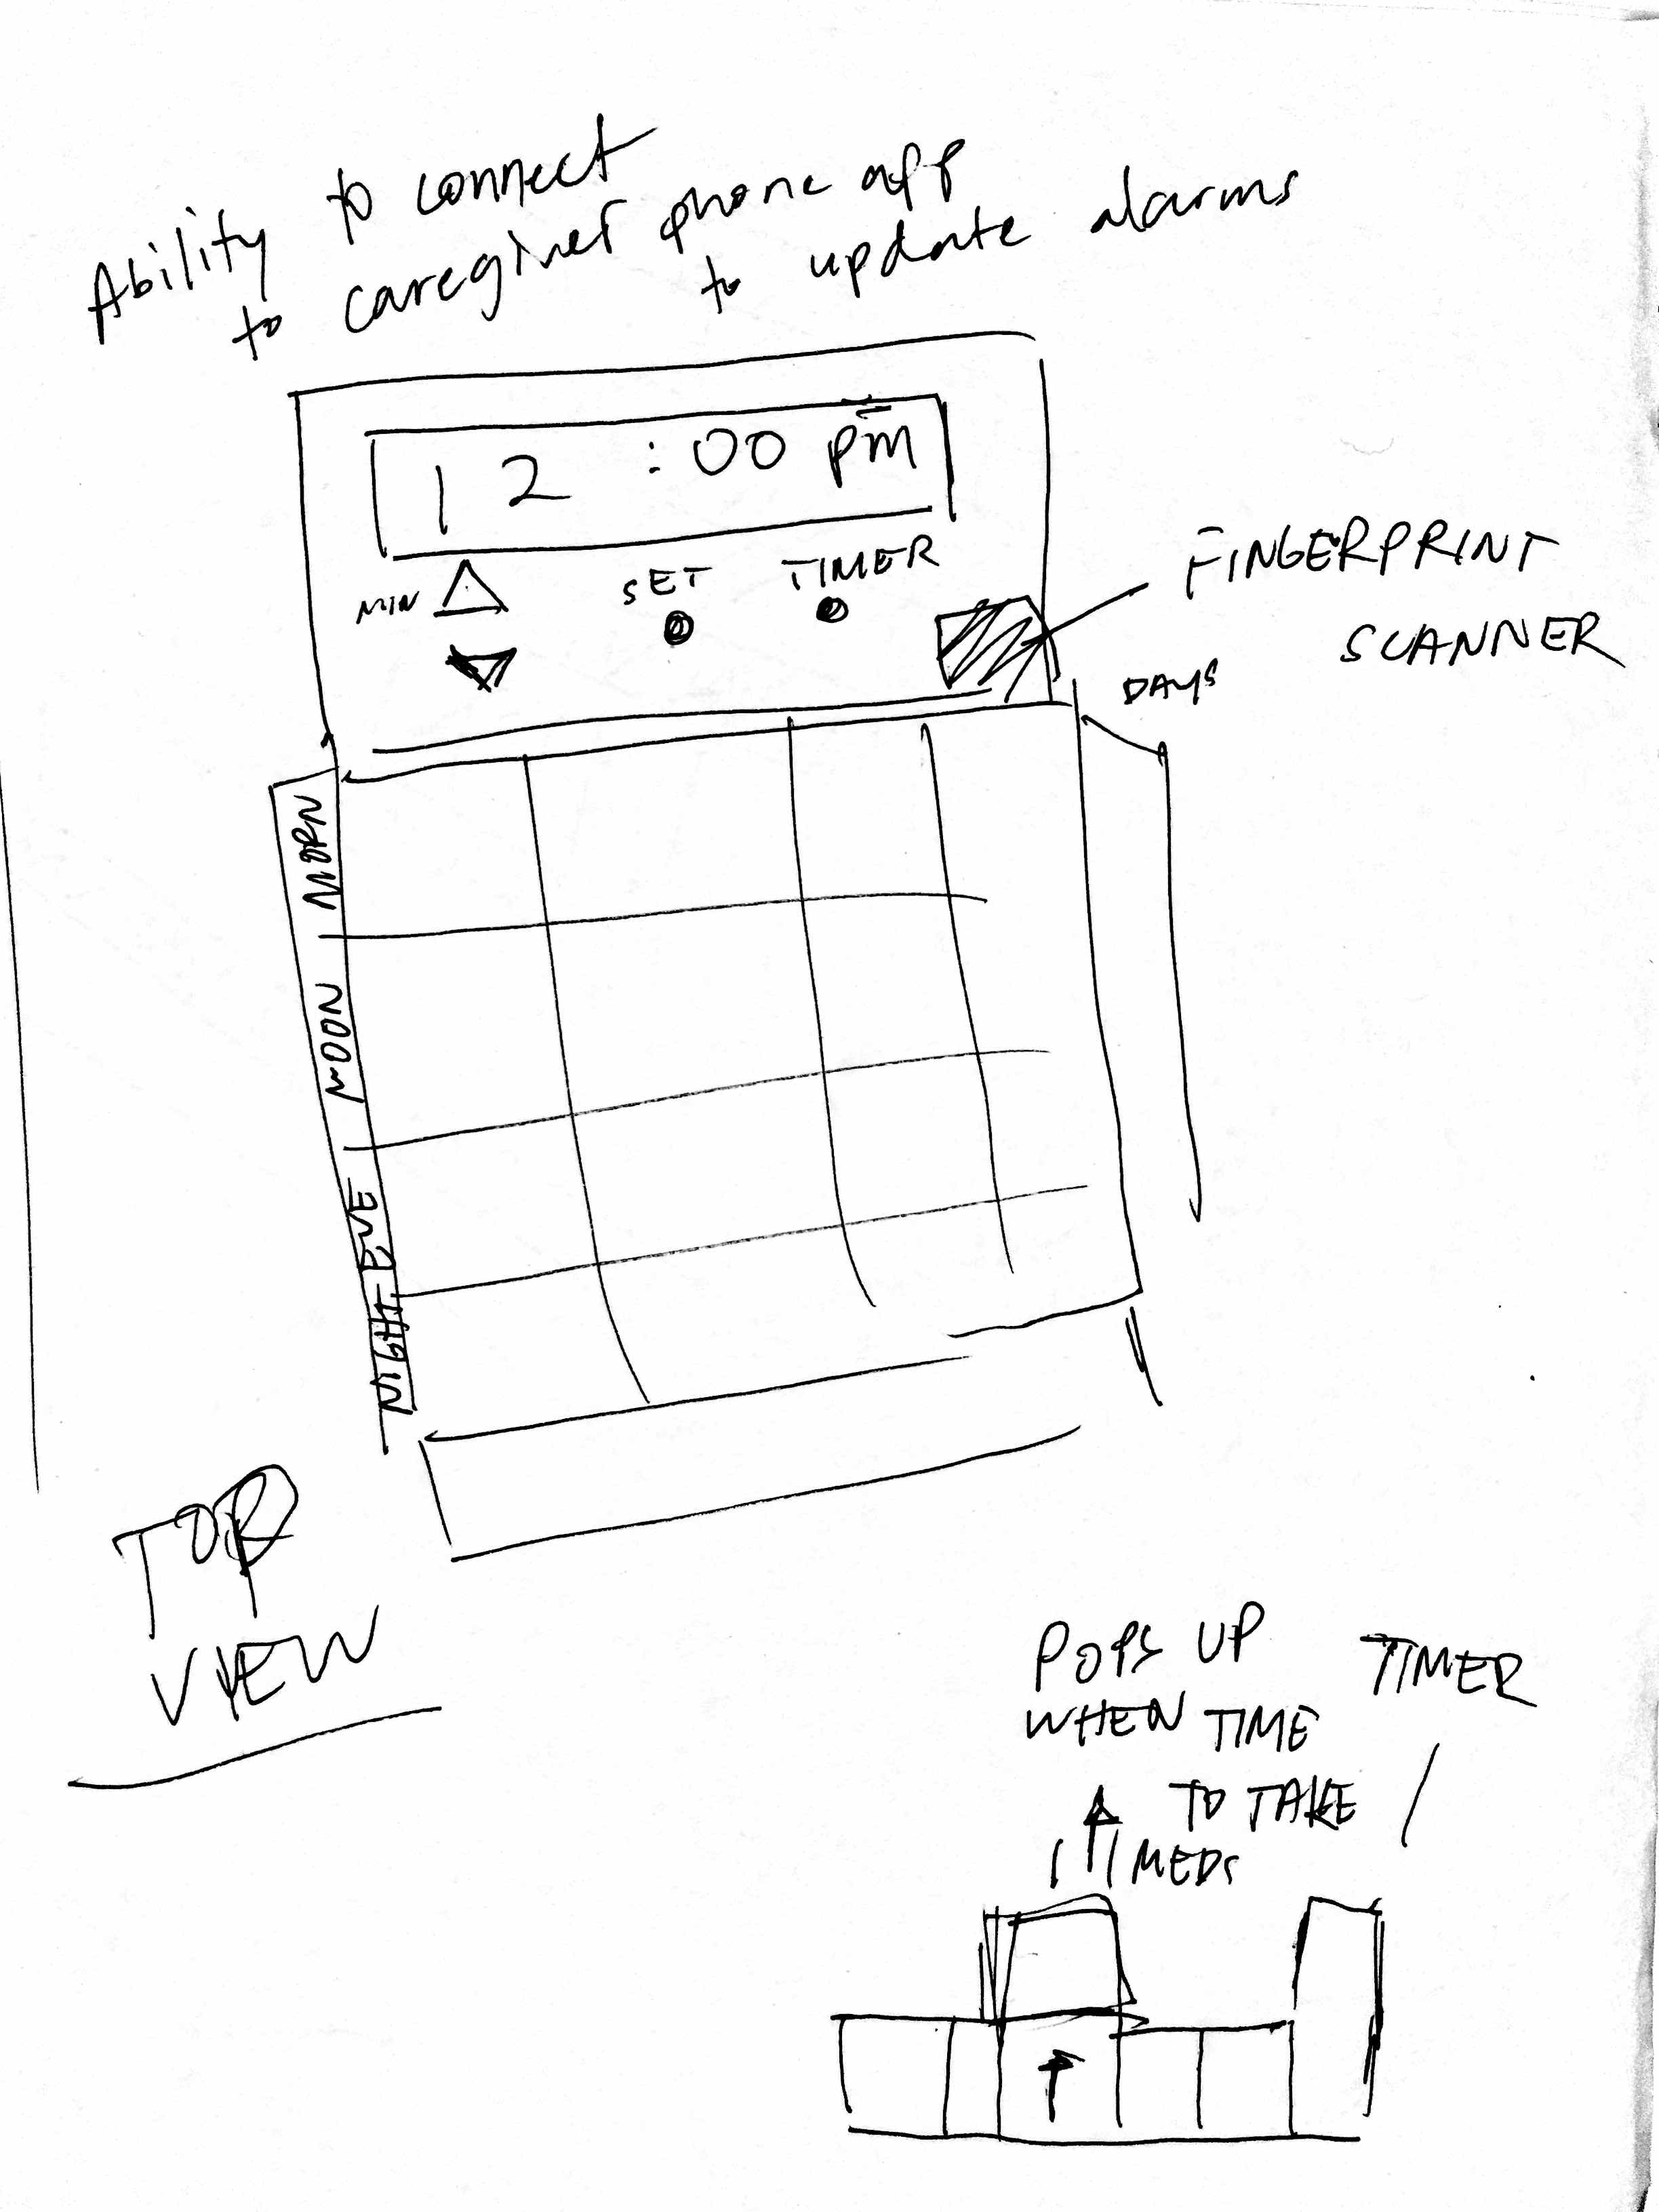 Ability to connect
to caregiver phone app
to update alarms
12:00 pm
MIN
SET
TIMER
FINGERPRINT
SCANNER
DAYS
MORN
NOON
EVE
NIGHT
TOP
VIEW
POPS UP
WHEN TIME
TO TAKE
MEDS
TIMER